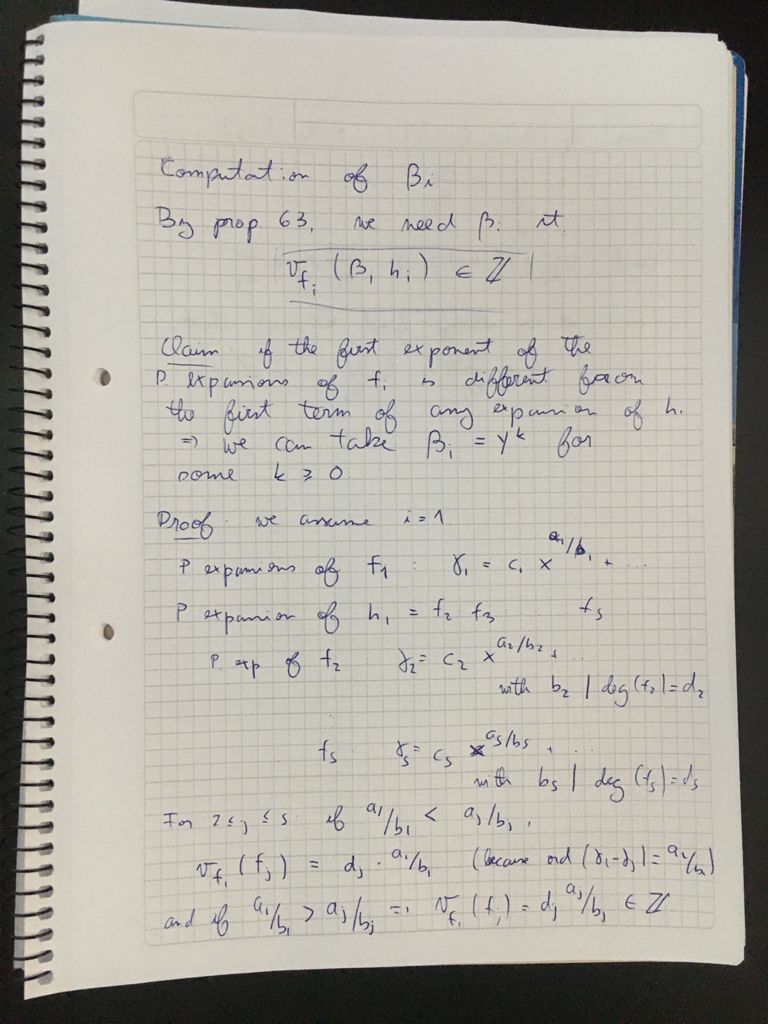 Computation of βi
By prop 63, we need βi st
v_{f_i} (βi hi) ∈ ℤ
Claim if the first exponent of the
P. expansions of fi is different from
the first term of any expansion of hi
⇒ we can take βi = y^k for
some k ≥ 0
Proof we assume i = 1
P expansions of f1 : γ1 = c1 x^{a1/b1} + ...
P expansion of h1 = f2 f3 fs
P. exp of f2 γ2 = c2 x^{a2/b2} + ...
with b2 | deg(f2) = d2
fs γs = cs x^{as/bs} + ...
with bs | deg(fs) = ds
For 2 ≤ j ≤ s if a1/b1 < aj/bj,
v_{f1}(fj) = dj · a1/b1 (because ord(γ1-γj) = a1/b1)
and if a1/b1 > aj/bj => v_{f1}(fj) = dj aj/bj ∈ ℤ